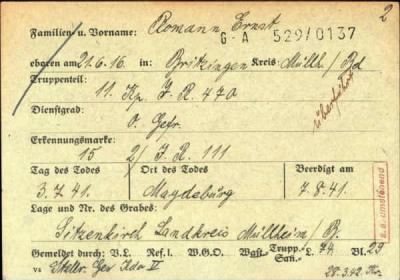 2
Familien u. Vorname: Romann Ernst
G-A 529/0137
eboren am 21.6.16 in: Britzingen Kreis: Müllh./Bd
Truppenteil:
11. Kp. J. R. 470
überführt
Dienstgrad:
O. Gefr.
Erkennungsmarke:
15 2/ J. R. 111
Tag des Todes Ort des Todes Beerdigt am
3.7.41. Magdeburg 7.8.41.
Lage und Nr. des Grabes:
Sitzenkirch Landkreis Müllheim/B.
s. a. umstehend
Gemeldet durch: V.L. Ref.l. W.G.O. Wast Trupp. San. L. 74 Bl. 29
vs Stellv. Gen Kdo V 28.3.42.